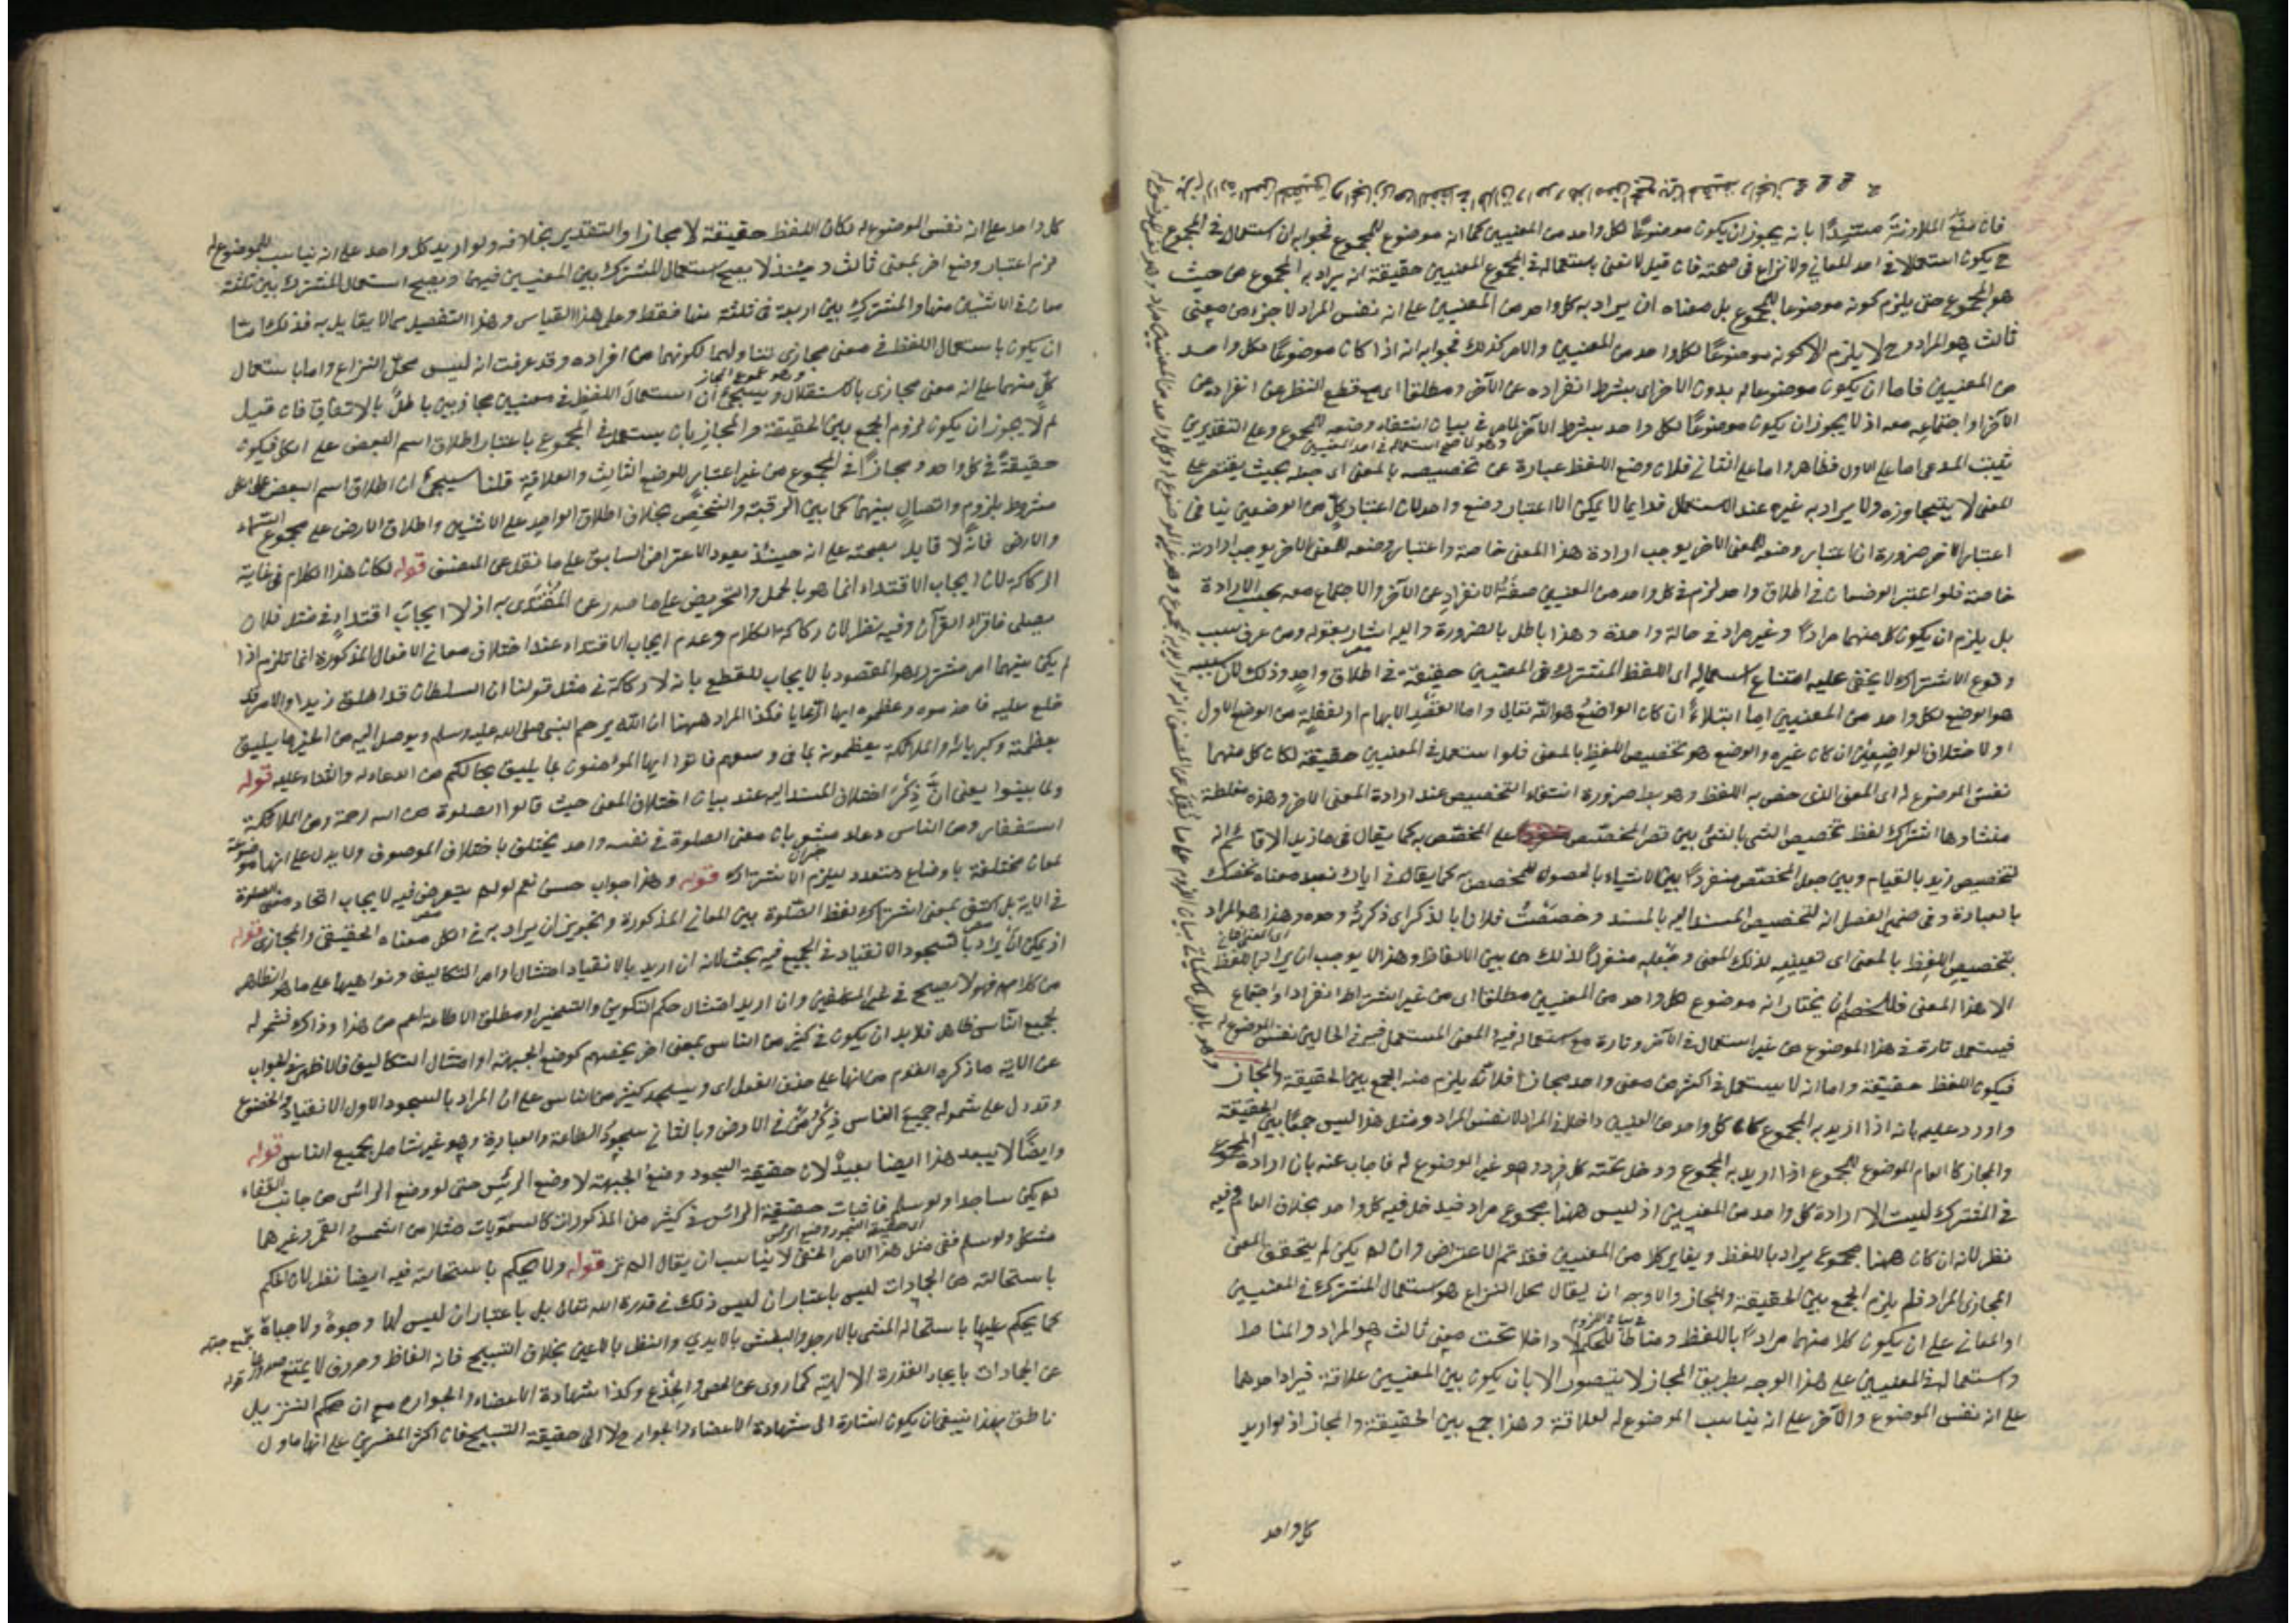 فان منع الملازمة مستندا بانه يجوز ان يكون موضوعا لكل واحد من المعنيين كما انه موضوع للمجموع فجوابه ان استعماله في المجموع
ح يكون استعمالا في احد المعاني ولا نزاع في صحته فان قيل لا نعنى باستعماله في المجموع المعنيين حقيقة انه يراد به المجموع من حيث
هو المجموع حتى يلزم كونه موضوعا للمجموع بل معناه ان يراد به كل واحد من المعنيين على انه نفس المراد لا جزء من معنى
ثالث هو المراد وح لا يلزم الا كونه موضوعا لكل واحد من المعنيين والامر كذلك فجوابه انه اذا كان موضوعا لكل واحد
من المعنيين فاما ان يكون موضوعا له بدون الاخر اى بشرط انفراده عن الآخر ومطلقا اى مع قطع النظر عن انفراده عن
الآخر او اجتماعه معه اذ لا يجوز ان يكون موضوعا لكل واحد بشرط الآخر لما مر في بيان انتفاء وضعه للمجموع وعلى التقديرين
وهو لما صح استعماله في احد المعنيين
يثبت المدعى اما على الاول فظاهر واما على الثاني فلان وضع اللفظ عبارة عن تخصيصه بالمعنى اى جعله بحيث يقتصر على
المعنى لا يتجاوزه ولا يراد به غيره عند الاستعمال فدايما لا يمكن الا اعتبار وضع واحد لان اعتبار كل من الوضعين ينافى
اعتبار الآخر ضرورة ان اعتبار وضعه للمعنى الاخر يوجب ارادة هذا المعنى خاصة واعتبار وضعه للمعنى الاخر يوجب ارادته
خاصة فلو اعتبر الوضعان في اطلاق واحد لزم في كل واحد من المعنيين صفة الانفراد عن الآخر والاجتماع معه بحسب الارادة
بل يلزم ان يكون كل منهما مرادا وغير مراد في حالة واحدة وهذا باطل بالضرورة واليه اشار بقوله ومن عرف سبب
وقوع الاشتراك لا يخفى عليه امتناع استعماله اى اللفظ المشترك في المعنيين حقيقة في اطلاق واحد وذلك لان سببه
هو الوضع لكل واحد من المعنيين اما ابتلاءً ان كان الواضع هو الله تعالى واما لقصد الابهام او لغفلة من الوضع الاول
او لاختلاف الواضعين ان كان غيره والوضع هو تخصيص اللفظ بالمعنى فلو استعمل في المعنيين حقيقة لكان كل منهما
نفس الموضوع له اى المعنى الذى خص به اللفظ وهو بط ضرورة انتفاء التخصيص عند ارادة المعنى الاخر وهذه مغلطة
منشاءها اشتراك لفظ تخصيص الشى بالشى بين قصر المخصص على المخصص به كما يقال في ما زيد الا قائم انه
لتخصيص زيد بالقيام وبين جعل المخصص منفردا بين الاشياء بالحصول للمخصص به كما يقال في اياك نعبد معناه نخصك
بالعبادة وفي ضمير الفصل انه لتخصيص المسند اليه بالمسند وخصصت فلانا بالذكر اى ذكرته وحده وهذا هو المراد
بتخصيص اللفظ بالمعنى اى تعيينه لذلك المعنى وجعله منفردا لذلك من بين الالفاظ وهذا لا يوجب ان يراد باللفظ
الا هذا المعنى فللخصم ان يختار انه موضوع لكل واحد من المعنيين مطلقا اى من غير اشتراط انفراد او اجتماع
فيستعمل تارة في هذا الموضوع من غير استعمال في الآخر وتارة مع استعماله فيه والمعنى المستعمل فيه في الحالين نفس الموضوع له
فيكون اللفظ حقيقة واما انه لا يستعمل في اكثر من معنى واحد مجازا فلانه يلزم منه الجمع بين الحقيقة والمجاز
واورد عليه بانه اذا اريد به المجموع كان كل واحد من المعنيين داخلا في المراد لا نفس المراد ومثل هذا ليس جمعا بين الحقيقة
والمجاز كالعام الموضوع للمجموع اذا اريد به المجموع ودخل تحته كل فرد وهو غير الموضوع له فاجاب عنه بان ارادة المجموع
في المشترك ليست الا ارادة كل واحد من المعنيين اذ ليس ههنا مجموع مراد فيدخل فيه كل واحد بخلاف العام وفيه
نظر لانه ان كان ههنا مجموع يراد باللفظ ويغاير كلا من المعنيين فقد تم الاعتراض وان لم يكن لم يتحقق المعنى
المجازى المراد فلم يلزم الجمع بين الحقيقة والمجاز والاوجه ان يقال محل النزاع هو استعمال المشترك في المعنيين
او المعاني على ان يكون كلا منهما مرادا باللفظ ومناطا للحكم لا داخلا تحت معنى ثالث هو المراد والمناط
واستعماله في المعنيين على هذا الوجه بطريق المجاز لا يتصور الا بان يكون بين المعنيين علاقة فيراد احدهما
على انه نفس الموضوع والآخر على انه يناسب الموضوع له لعلاقة وهذا جمع بين الحقيقة والمجاز اذ لو اريد
كل واحد
كل واحد على انه نفس الموضوع له لكان اللفظ حقيقة لا مجازا والتقدير بخلافه ولو اريد كل واحد على انه يناسب للموضوع له
لزم اعتبار وضع اخر لمعنى ثالث وحينئذ لا يصح استعمال المشترك بين المعنيين فيهما ويصح استعمال المشترك بين ثلثة
معان في الاثنين منها والمشترك بين اربعة في ثلثة منها فقط وعلى هذا القياس وهذا التفصيل مما لا يقايل به فذلك اما
ان يكون باستعمال اللفظ في معنى مجازى تناولهما لكونهما من افراده وقد عرفت انه ليس محل النزاع واما باستعمال
وهو عموم المجاز
كل منهما على انه معنى مجازى بالاستقلال وسيجئ ان استعمال اللفظ في معنيين مجازيين باطل بالاتفاق فان قيل
لم لا يجوز ان يكون لزوم الجمع بين الحقيقة والمجاز بان يستعمل في المجموع باعتبار اطلاق اسم البعض على الكل فيكون
حقيقة في كل واحد ومجازا في المجموع من غير اعتبار للوضع الثالث والعلاقة قلنا سيجئ ان اطلاق اسم البعض على الكل
مشروط بلزوم واتصال بينهما كما بين الرقبة والشخص بخلاف اطلاق الواحد على الاثنين واطلاق الارض على مجموع السماء
والارض فانه لا قايل بصحته على انه حينئذ يعود الاعتراض السابق على ما نقل عن المصنف قوله لكان هذا الكلام في غاية
الركاكة لان ايجاب الاقتداء انما هو بالحمل والتحريض على ما صدر عن المقتدى به اذ لا ايجاب اقتداء في مثل فلان
يصلى فاقرؤا القرآن وفيه نظر لان ركاكة الكلام وعدم ايجاب الاقتداء عند اختلاف معاني الافعال المذكورة انما تلزم اذا
لم يكن بينهما امر مشترك هو المقصود بالايجاب للقطع بانه لا ركاكة في مثل قولنا ان السلطان قد اطلق زيدا والامير قد
خلع عليه فاخدموه وعظموه ايها الرعايا فكذا المراد ههنا ان الله يرحم النبى صلى الله عليه وسلم ويوصل اليه من الخير ما يليق
بعظمته وكبريائه والملائكة يعظمونه بما في وسعهم فاتوا ايها المؤمنون بما يليق بحالكم من الدعاء له والثناء عليه قوله
ولما بينوا يعنى ان ذكر اختلاف المسند اليه عند بيان اختلاف المعنى حيث قالوا الصلوة من الله رحمة ومن الملائكة
استغفار ومن الناس دعاء مشعر بان معنى الصلوة في نفسه واحد يختلف باختلاف الموصوف ولا يدل على انها موضوعة
لمعان مختلفة باوضاع متعدد ليلزم الاشتراك قوله وهذا جواب حسن نعم لو لم يتعرض فيه لايجاب اتحاد معنى الصلوة
في الاية بل اكتفى بمعنى اشتراك لفظ الصلوة بين المعاني المذكورة وتجويز ان يراد به في الكل معناه الحقيقى والمجازى قوله
اذ يمكن ان يراد بالسجود الانقياد في الجميع فيه بحث لانه ان اريد بالانقياد امتثال اوامر التكاليف ونواهيها على ما هو الظاهر
من كلامهم فهو لا يصح في غير المكلفين وان اريد امتثال حكم التكوين والتسخير او مطلق الاطاعة اعم من هذا وذاك فشموله
لجميع الناس ظاهر فلا بد ان يكون في كثير من الناس بمعنى اخر يخصهم كوضع الجبهة او امتثال التكاليف فالاظهر في الجواب
عن الآية ما ذكره القوم من انها على حذف الفعل اى ويسجد كثير من الناس على ان المراد بالسجود الاول الانقياد والخضوع
وقد دل على شموله جميع الناس ذكر من في الارض وبالثاني سجود الطاعة والعبادة وهو غير شامل لجميع الناس قوله
وايضا لا يبعد هذا ايضا بعيد لان حقيقة السجود وضع الجبهة لا وضع الرأس حتى لو وضع الرأس من جانب القفاء
لم يكن ساجدا ولو سلم فاثبات حقيقة الرأس في كثير من المذكورات كالسمويات مثلا من الشمس والقمر وغيرهما
مشكل ولو سلم ففى مثل هذا الامر الخفى لا يناسب ان يقال الم تر قوله ولا يحكم باستحالته فيه ايضا نظر لان الحكم
باستحالته من الجمادات ليس باعتبار ان ليس ذلك في قدرة الله تعالى بل باعتبار ان ليس لها وجوه ولا جباه
كما يحكم عليها باستحالة المشى بالارجل والبطش بالايدى والنظر بالاعين بخلاف التسبيح فانه الفاظ وحروف لا يمتنع صدورها
عن الجمادات بايجاد القدرة الالهية كما روى عن الحصى والجذع وكذا شهادة الاعضاء والجوارح مع ان حكم التنزيل
ناطق بهذا ينبغى ان يكون اشارة الى شهادة الاعضاء والجوارح لا الى حقيقة التسبيح فان اكثر المفسرين على انها ماول